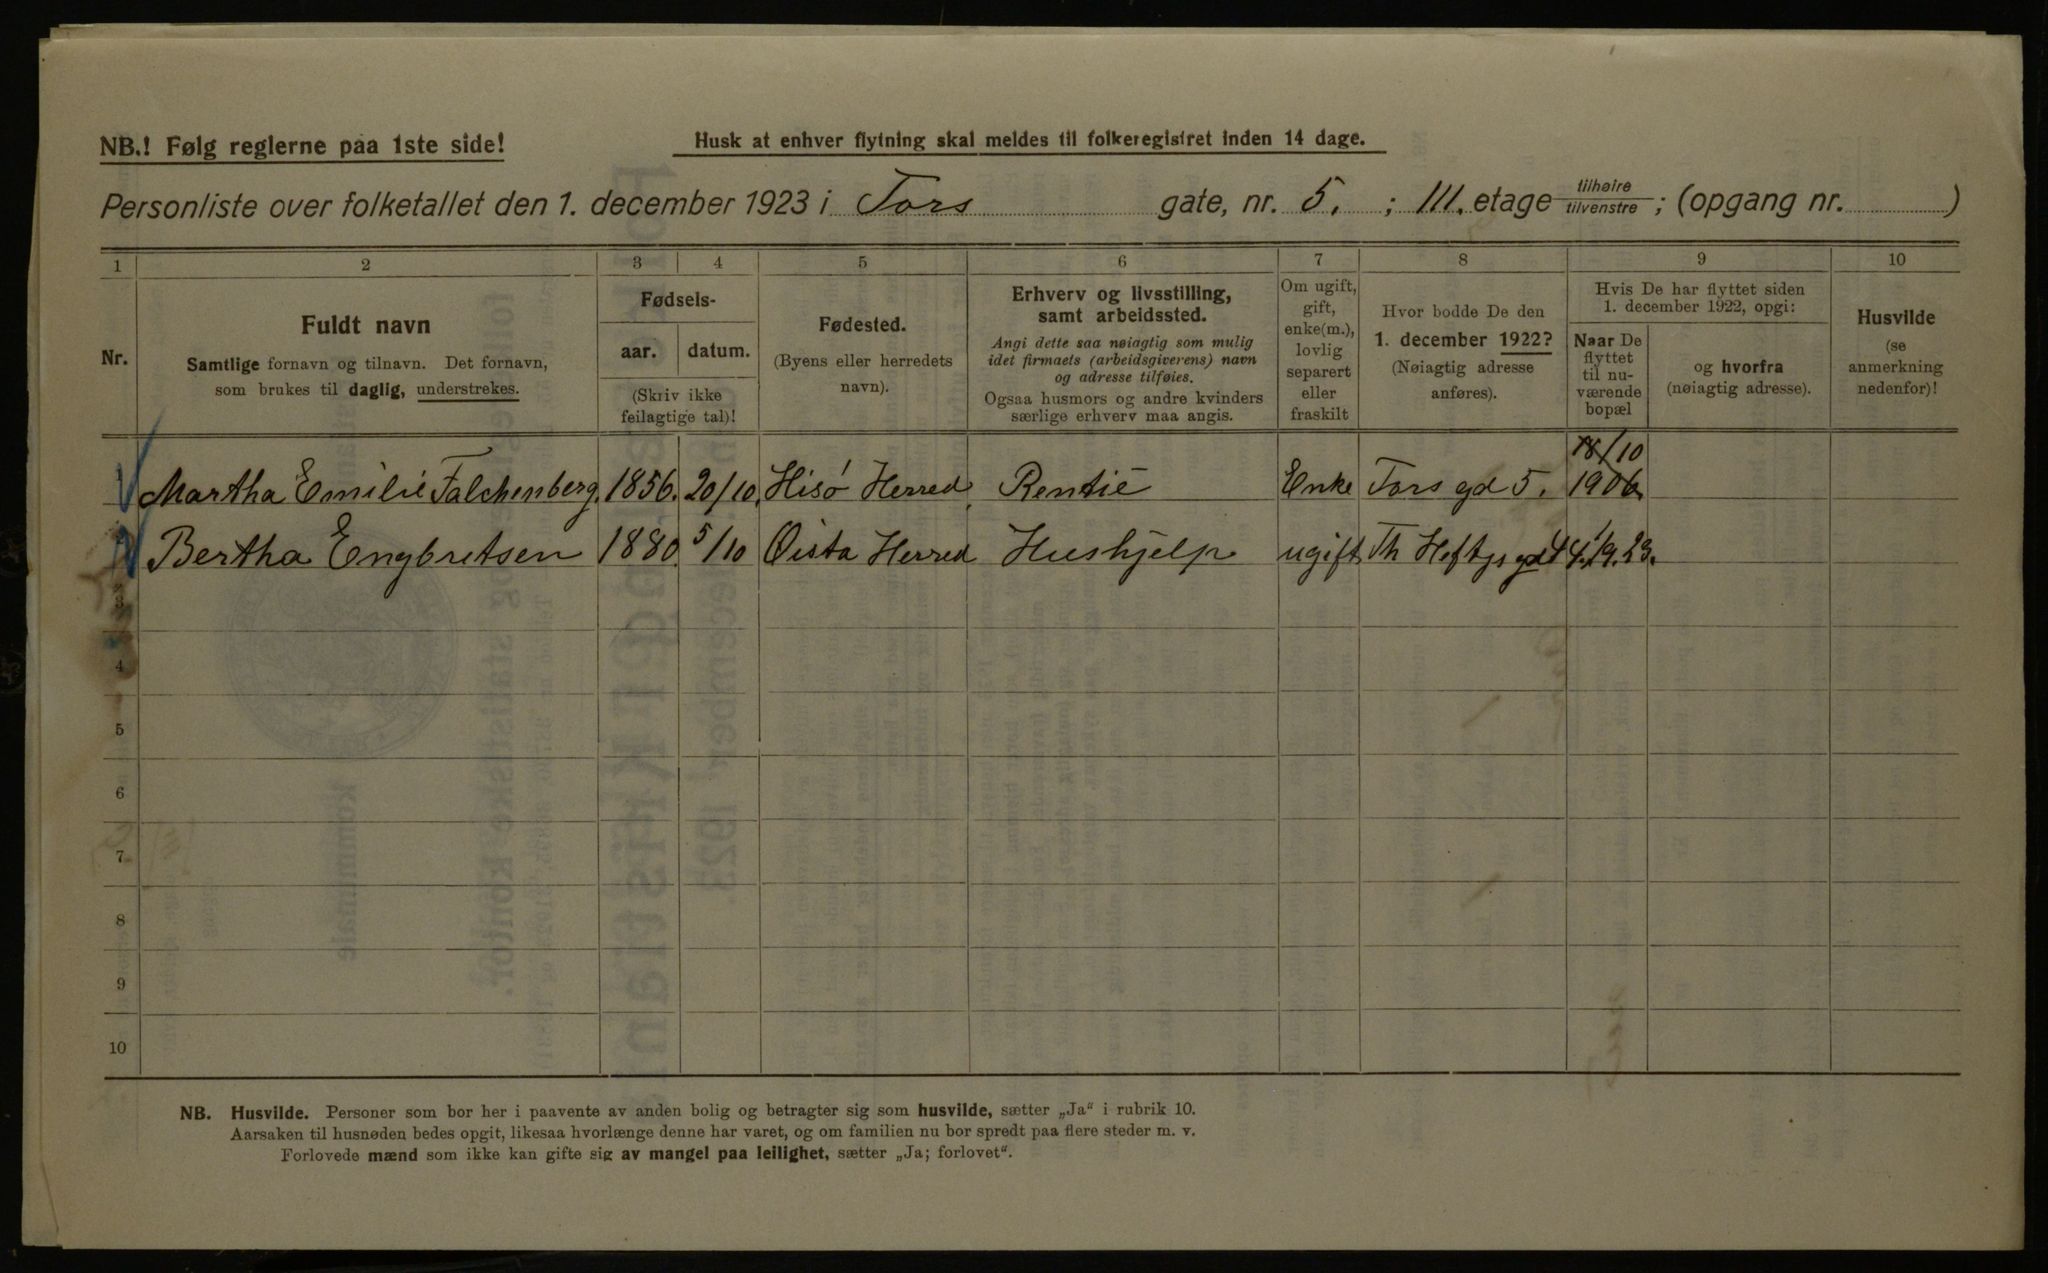 NB.! Følg reglerne paa 1ste side!
Husk at enhver flytning skal meldes til folkeregistret inden 14 dage.
Personliste over folketallet den 1. december 1923 i Tors gate, nr. 5. ; III. etage tilhøire tilvenstre ; (opgang nr. )
1 2 3 4 5 6 7 8 9 10
Nr.
Fuldt navn
Samtlige fornavn og tilnavn. Det fornavn,
som brukes til daglig, understrekes.
Fødsels-
aar. datum.
(Skriv ikke
feilagtige tal)!
Fødested.
(Byens eller herredets
navn).
Erhverv og livsstilling,
samt arbeidssted.
Angi dette saa nøiagtig som mulig
idet firmaets (arbeidsgiverens) navn
og adresse tilføies.
Ogsaa husmors og andre kvinders
særlige erhverv maa angis.
Om ugift,
gift,
enke(m.),
lovlig
separert
eller
fraskilt
Hvor bodde De den
1. december 1922?
(Nøiagtig adresse
anføres).
Hvis De har flyttet siden
1. december 1922, opgi:
Naar De
flyttet
til nu-
værende
bopæl
og hvorfra
(nøiagtig adresse).
Husvilde
(se
anmerkning
nedenfor)!
18/10
1 Martha Emilie Falchenberg. 1856. 20/10. Hisö Herred, Rentié Enke Tors gd 5. 1906.
2 Bertha Engbretsen 1880. 5/10 Øista Herred Hushjelp ugift Th Heftys gd 44.
3
4
5
6
7
8
9
10
NB. Husvilde. Personer som bor her i paavente av anden bolig og betragter sig som husvilde, sætter „Ja“ i rubrik 10.
Aarsaken til husnøden bedes opgit, likesaa hvorlænge denne har varet, og om familien nu bor spredt paa flere steder m. v.
Forlovede mænd som ikke kan gifte sig av mangel paa leilighet, sætter „Ja; forlovet“.